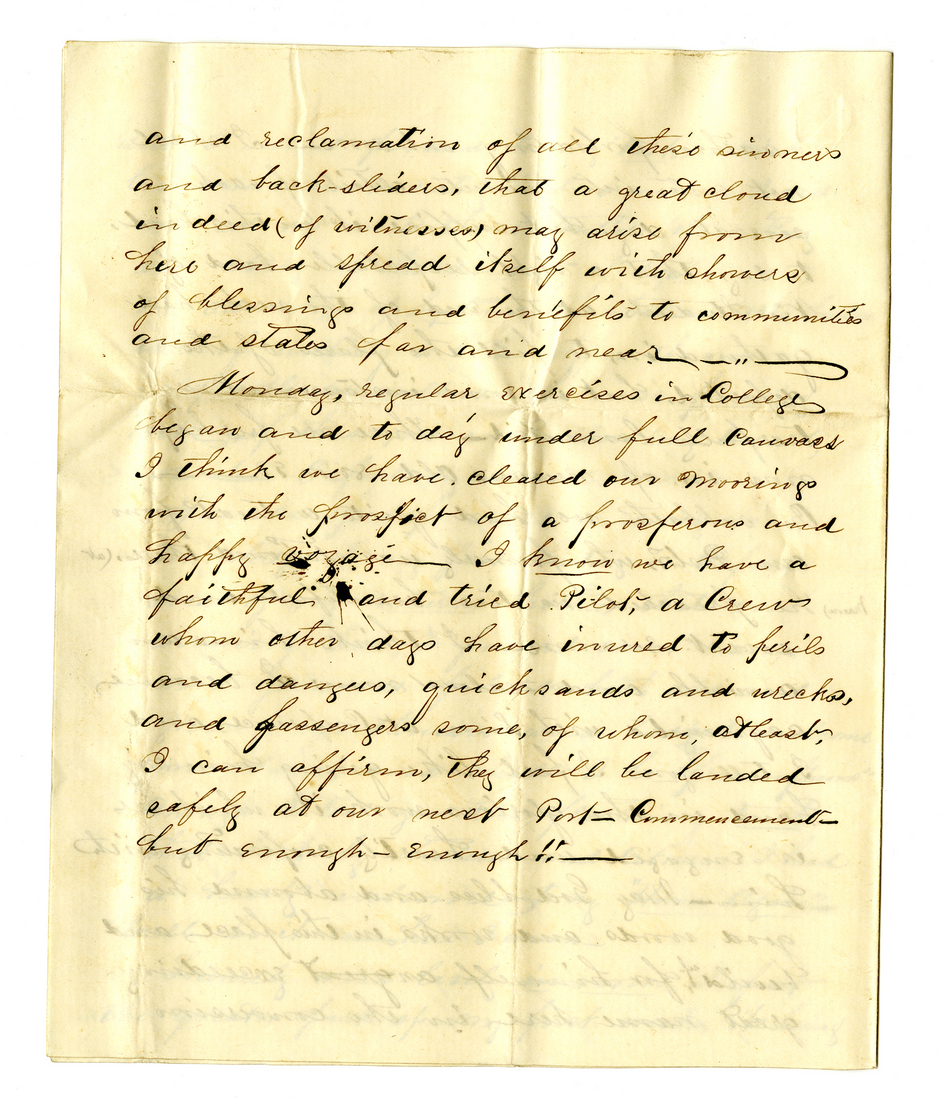 and reclamation of all these sinners
and back-sliders, that a great cloud
indeed (of witnesses) may arise from
here and spread itself with showers
of blessings and benefits to communities
and states far and near — „ —
Monday, regular exercises in College
began and to day under full Canvass
I think we have cleared our moorings
with the prospect of a prosperous and
happy voyage — I know we have a
faithful and tried Pilot, a Crew
whom other days have inured to perils
and dangers, quicksands and wrecks,
and passengers some, of whom, at least,
I can affirm, they will be landed
safely at our next Port — Commencement —
but enough — enough!! —